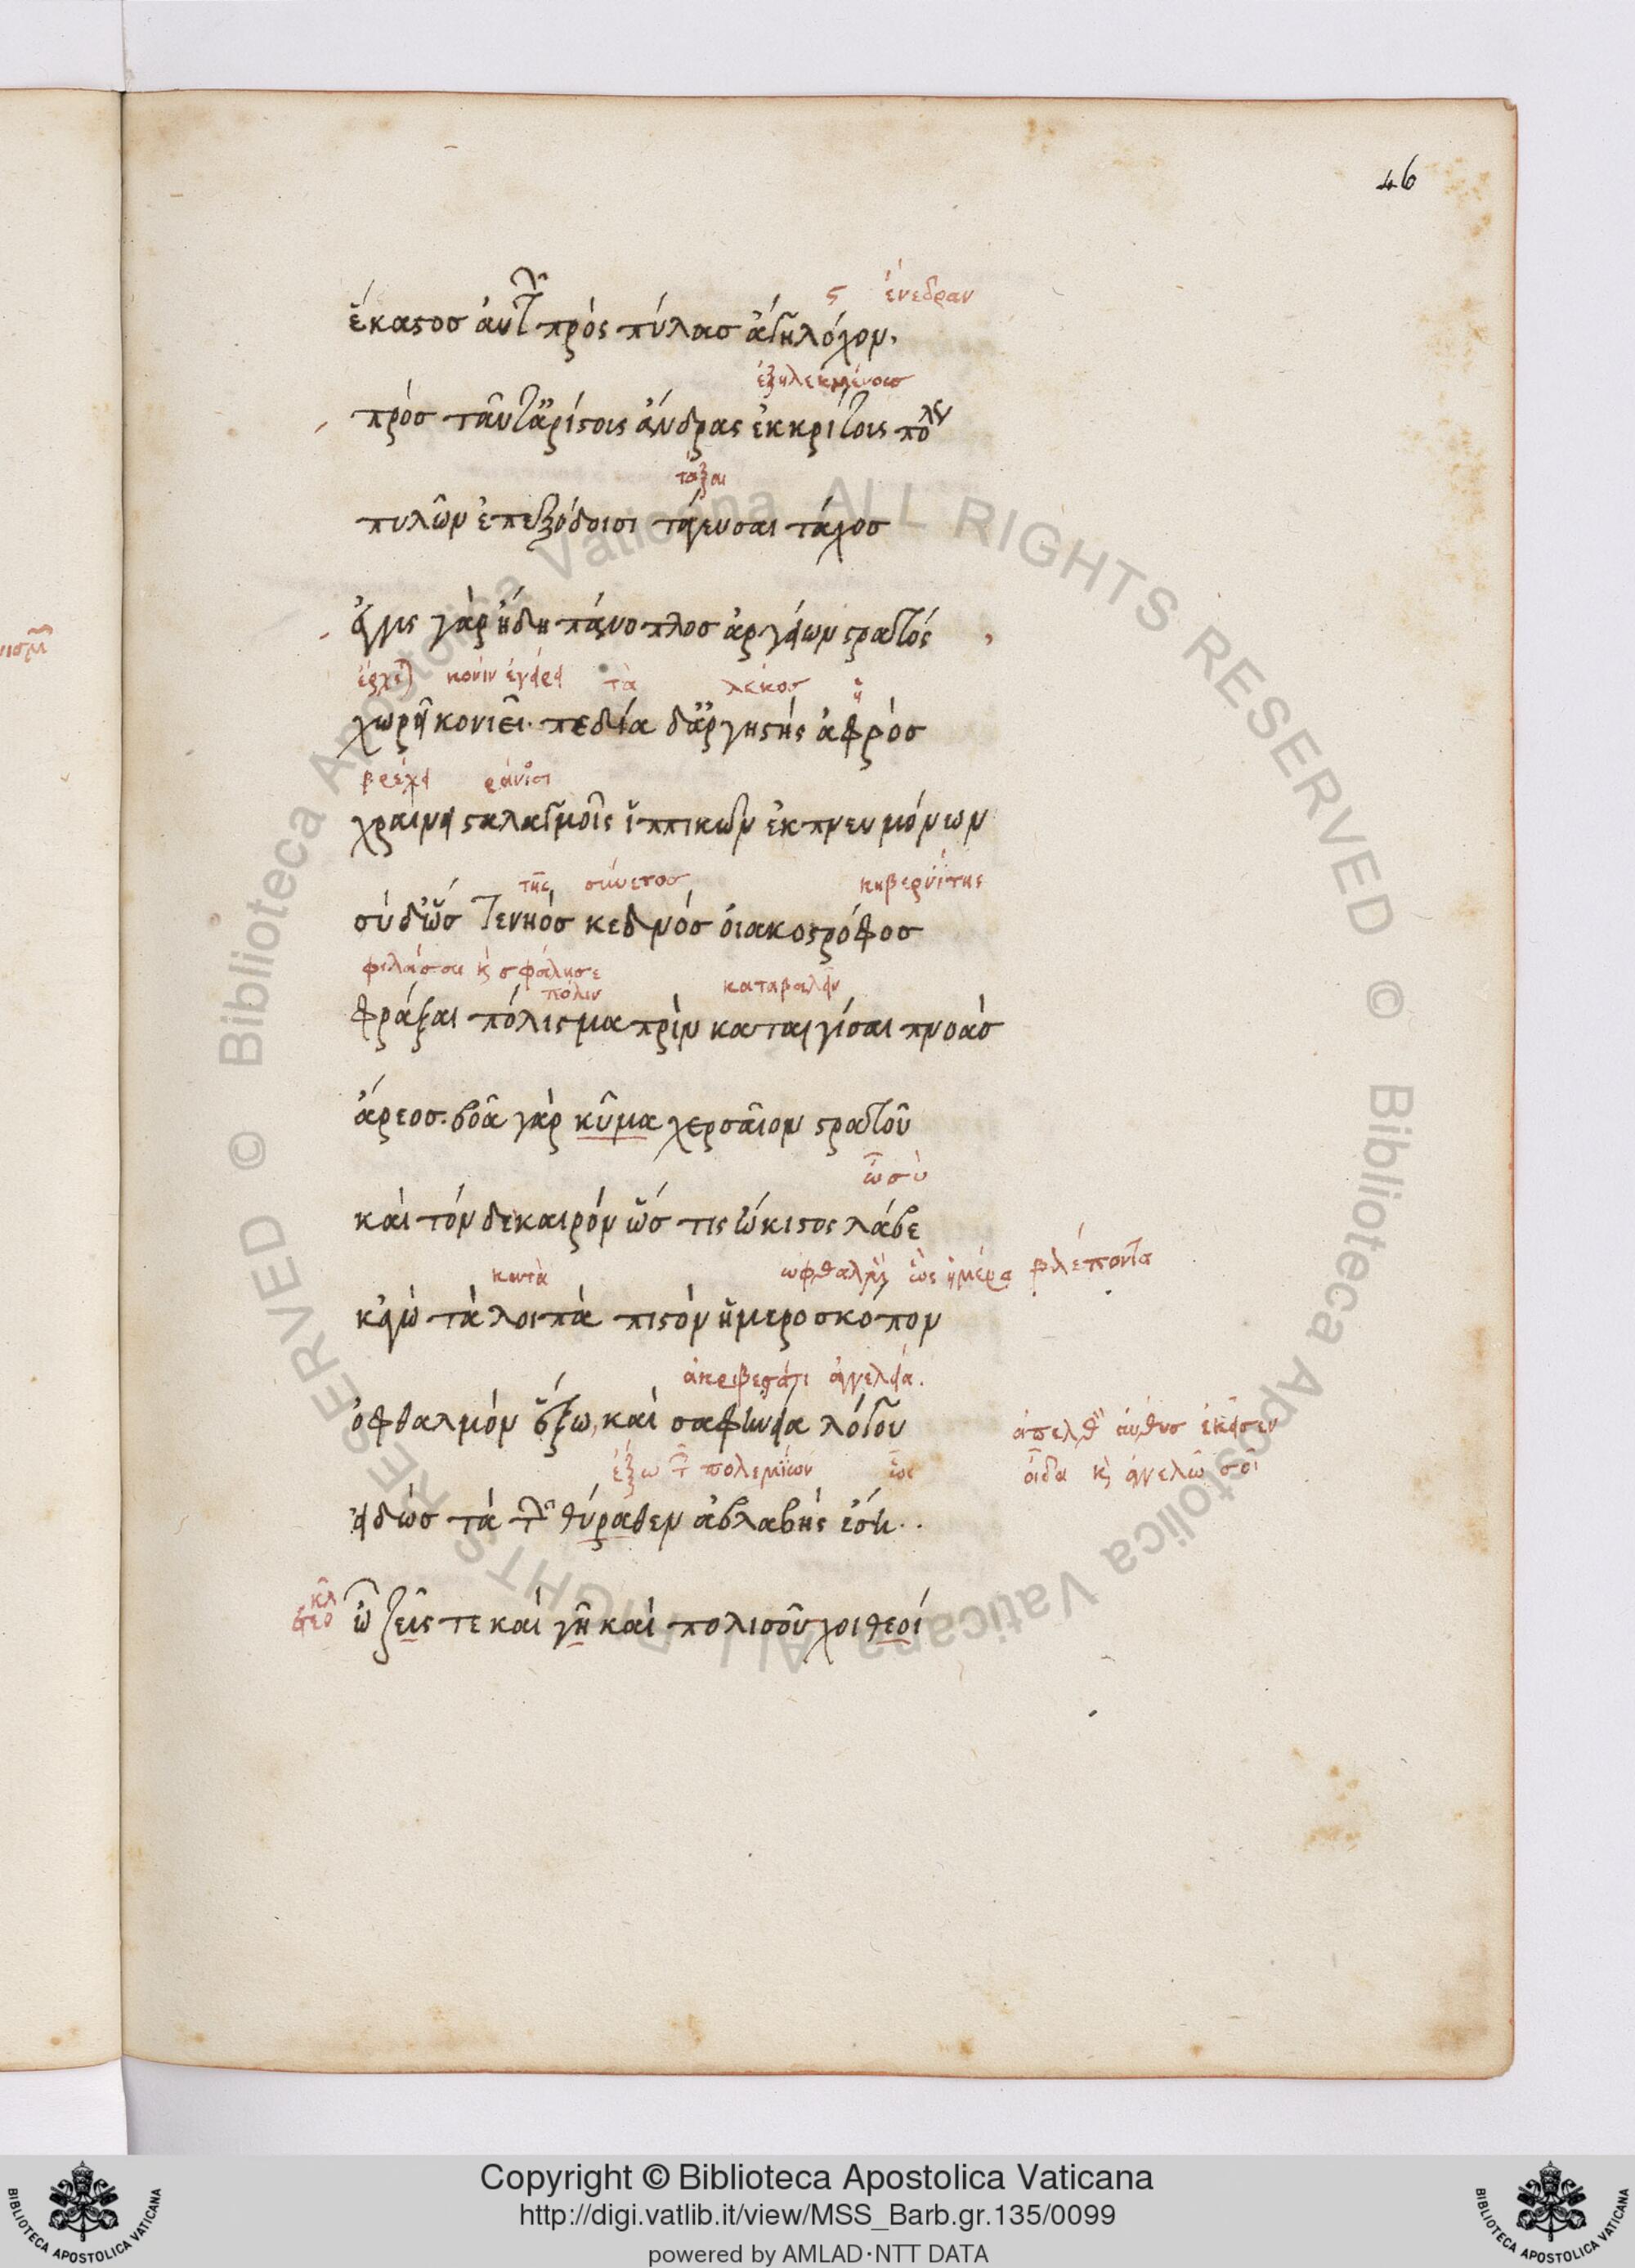 46
ἔνεδραν
ἕκαστοσ αὐτῶν πρὸς πύλασ ἄγειλόχον,
ἐξηλεκμένοισ
πρόσ ταῦτἀρίστοις ἄνδρας ἐκκρίτοις πόλεως
τάξαι
πυλῶν ἐπεξόδοισι τάγευσαι τάχοσ
ἐγγὺς γὰρ ἤδη πάνοπλοσ ἀργείων στρατός
ἔρχεται κονιν ἐγείρει τὰ λεκοσ ἡ
χωρεῖ κονιεῖ· πεδία δἀργηστὴς ἀφρὸσ
βρέχει ράνισι
χραίνει σταλαγμοῖς ἱππικῶν ἐκπνευμόνων
τῆς σύνετοσ κηβερνίτης
σὺ δὥσ τε νηόσ κεδνόσ οἰακοστρόφοσ
φιλάσσαι κ σφάλησε
πόλιν καταβαλεῖν
φράξαι πόλισμα πρὶν καταιγίσαι πνοὰσ
ἄρεοσ. βοᾶ γὰρ κῦμα χερσαῖον στρατοῦ
ὦ σὺ
καὶ τόνδε καιρόν ὥσ τις ὤκιστος λάβε
κατὰ ὠφθαλμ ἕως ἡμέρα βλέποντα
κἀγὼ τὰ λοιπὰ πιστὸν ἡμεροσκόπον
ἀκριβεστάτι ἀγγελεία.
ὀφθαλμὸν ἕξω, καὶ σαφηνεία λόγου
ἀπελθ αὐθυσ ἐκεῖσεν
ἔξω τ πολεμίων ἕως
οἶδα κ ἀγγελῶ σοὶ
εἰδὼσ τὰ τῶν θύραθεν ἀβλαβὴς ἔσῃ..
ετεο κλ
ὦ ζεῦς τε καὶ γῆ καὶ πολισσοῦχοι θεοί
Copyright © Biblioteca Apostolica Vaticana
http://digi.vatlib.it/view/MSS_Barb.gr.135/0099
powered by AMLAD·NTT DATA
BIBLIOTECA APOSTOLICA VATICANA
BIBLIOTECA APOSTOLICA VATICANA
© Biblioteca Apostolica Vaticana ALL RIGHTS RESERVED
© Biblioteca Apostolica Vaticana ALL RIGHTS RESERVED